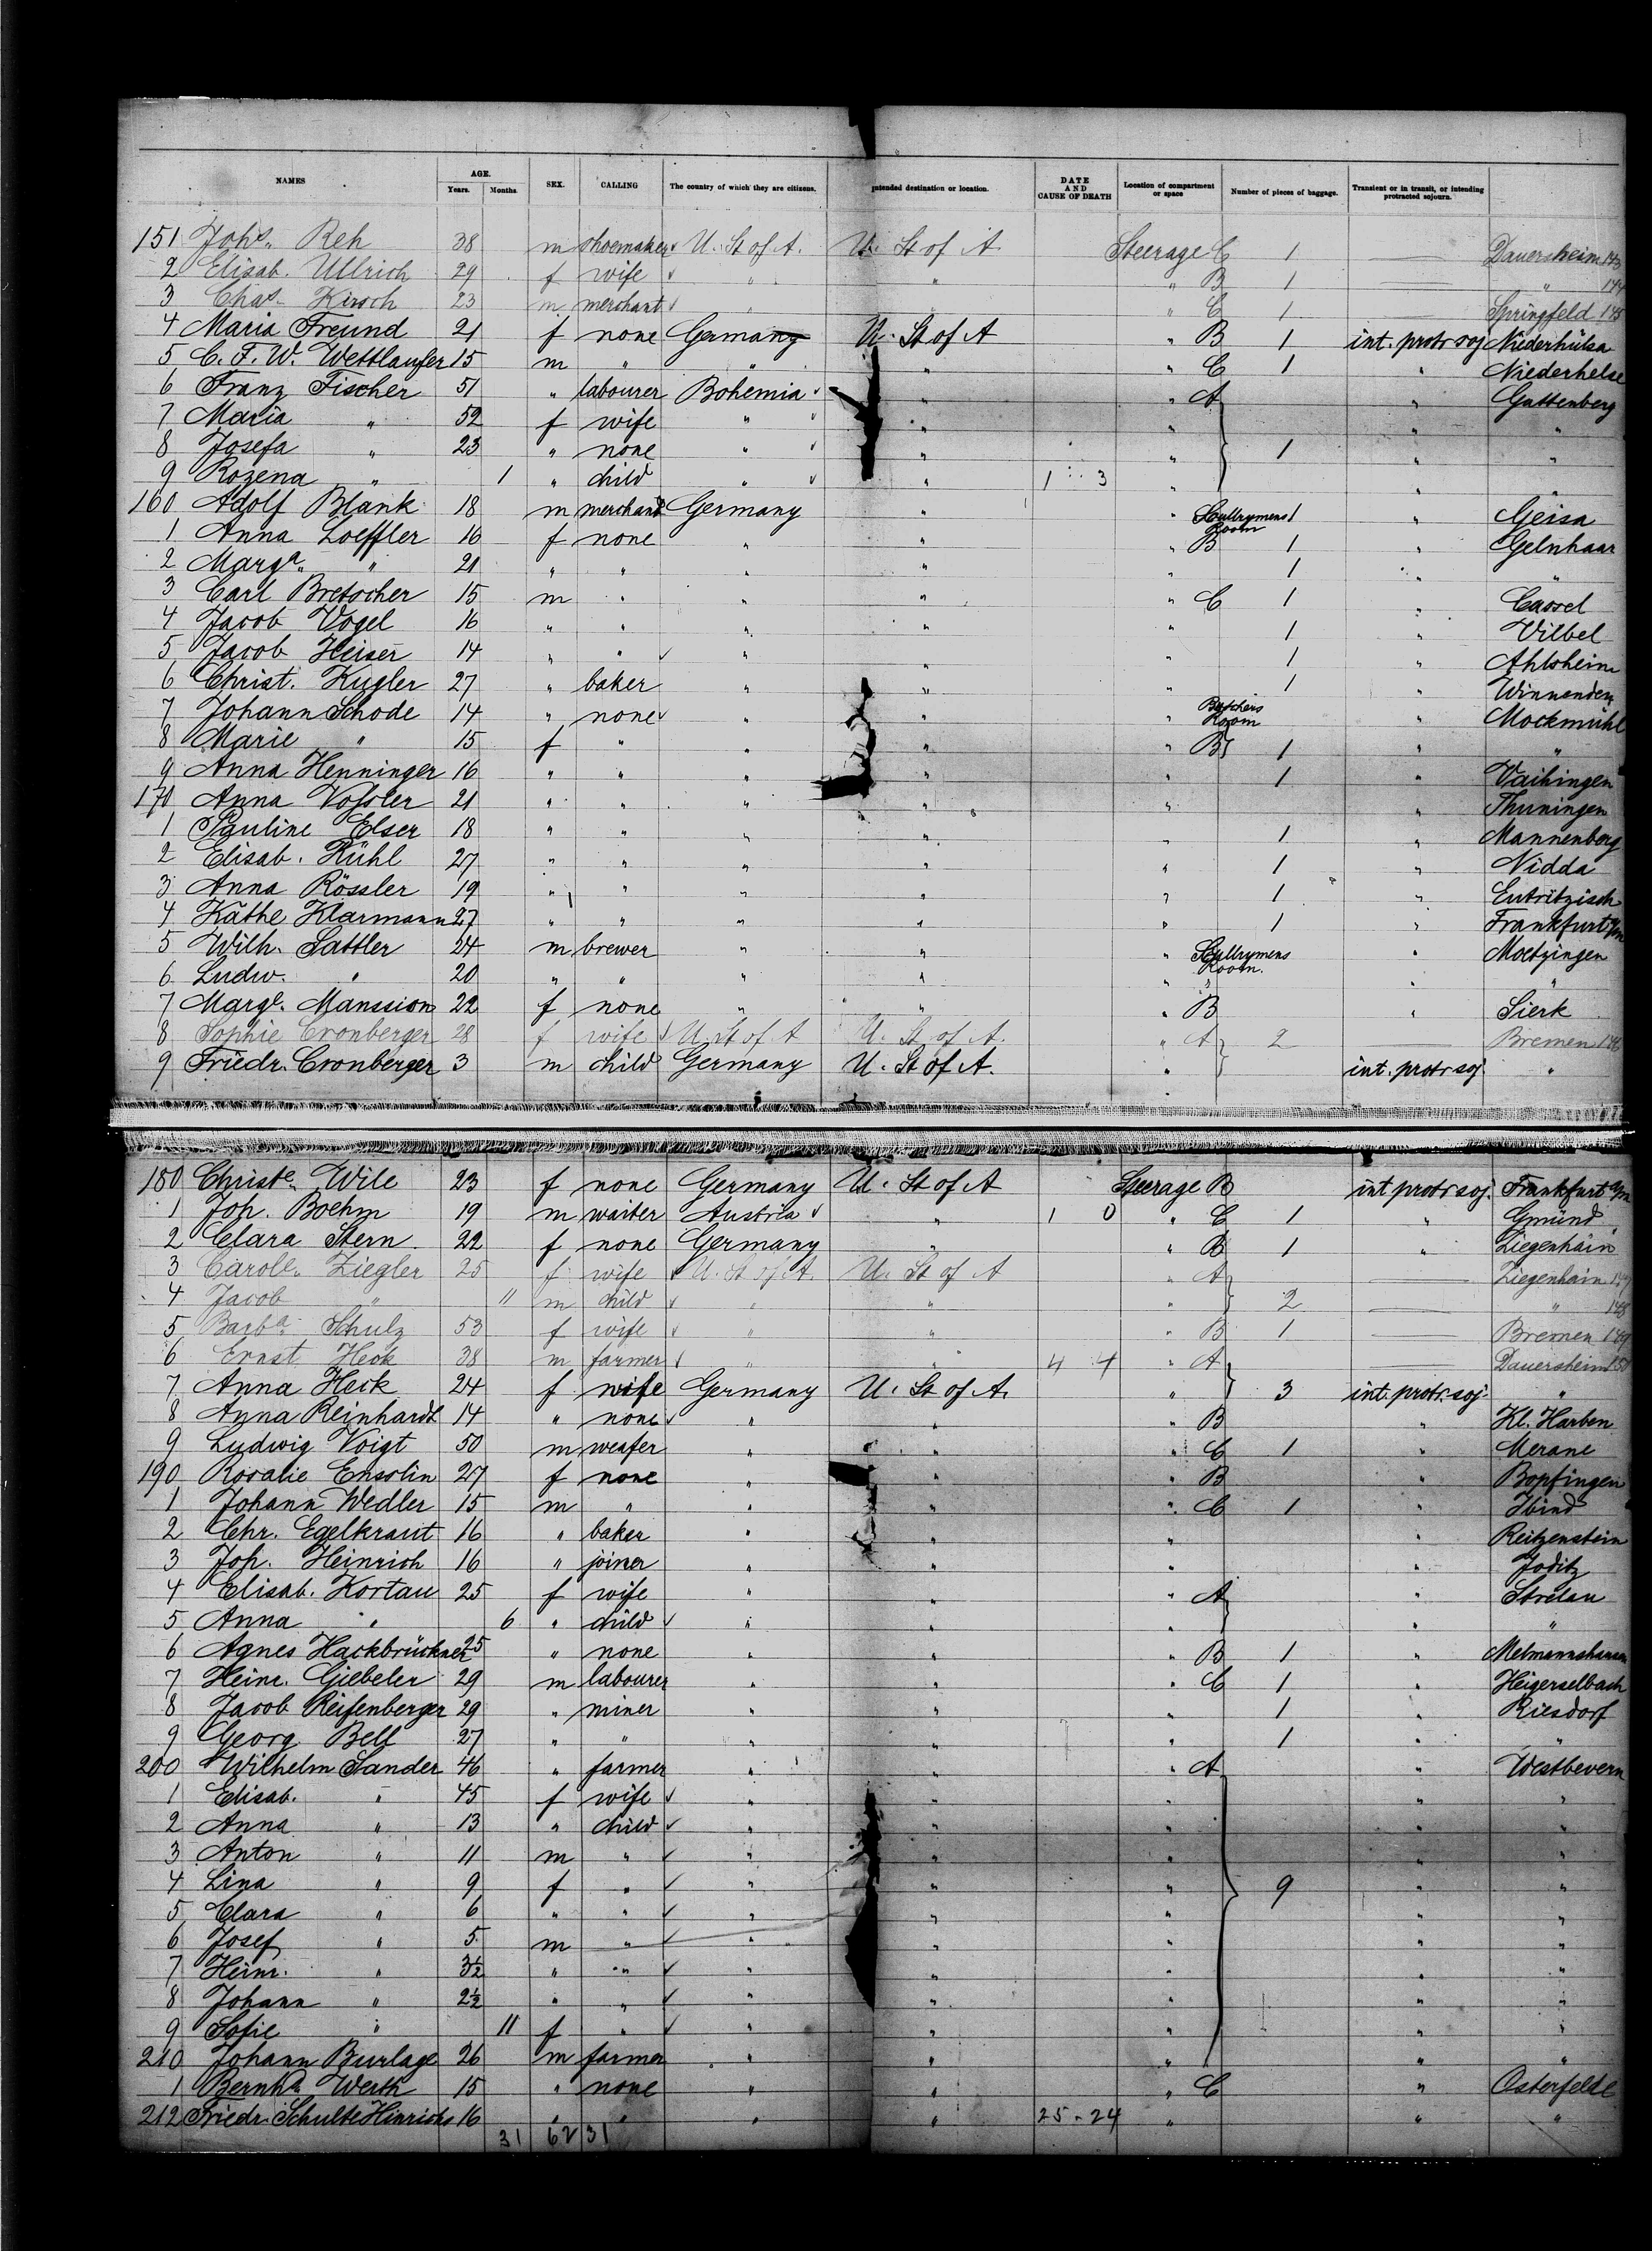 NAMES AGE. Years. Months. SEX. CALLING The country of which they are citizens. Intended destination or location. DATE AND CAUSE OF DEATH Location of compartment or space Number of pieces of baggage. Transient or in transit, or intending protracted sojourn.
151 Johs. Reh 38 m shoemaker U. St of A. U. St of A Steerage C 1 — Dauersheim 143
2 Elisab. Ullrich 29 f wife " " " B 1 — " 144
3 Chas. Kirsch 23 m merchant " " " C 1 — Springfeld 145
4 Maria Freund 21 f none Germany U. St of A " B 1 int. protr soj Niederhülsa
5 C. F. W. Wettlaufer 15 m " " " " C 1 " Niederhelse
6 Franz Fischer 51 " labourer Bohemia " " A " Guttenberg
7 Maria " 52 f wife " " " " "
8 Josefa " 23 " none " " " 1 " "
9 Rozena " 1 " child " " 1 : 3 " " "
160 Adolf Blank 18 m merchant Germany " " Scullrymens Room 1 " Geisa
1 Anna Loeffler 16 f none " " " B 1 " Gelnhaar
2 Marga. " 21 " " " " " 1 " "
3 Carl Bretocher 15 m " " " " C 1 " Cassel
4 Jacob Vogel 16 " " " " " 1 " Vilbel
5 Jacob Heiser 14 " " " " " 1 " Ahlsheim
6 Christ. Kugler 27 " baker " " " 1 " Winnenden
7 Johann Schode 14 " none " " " Butchers Room " Mockmühl
8 Marie " 15 f " " " " B 1 " "
9 Anna Henninger 16 " " " " " 1 " Vaihingen
170 Anna Vossler 21 " " " " " " Thuningen
1 Pauline Elser 18 " " " " " 1 " Mannenberg
2 Elisab. Rühl 27 " " " " " 1 " Nidda
3 Anna Rössler 19 " " " " " 1 " Eutritzisch
4 Käthe Klarmann 27 " " " " " 1 " Frankfurt a/m
5 Wilh. Sattler 24 m brewer " " " Scullrymens Room. " Moetzingen
6 Ludw. " 20 " " " " " " " "
7 Marge. Manssion 22 f none " " " B " Sierk
8 Sophie Cronberger 28 f wife U. St of A U. St of A. " A 2 — Bremen 146
9 Friedr. Cronberger 3 m child Germany U. St of A. " int. protr soj. "
180 Christe. Wile 23 f none Germany U. St of A Steerage B int protr soj. Frankfurt a/m
1 Joh. Boehm 19 m waiter Austria " 1 0 " C 1 " Gmünd
2 Clara Stern 22 f none Germany " " B 1 " Ziegenhain
3 Carole. Ziegler 25 f wife U. St of A. U. St of A " A — Ziegenhain 147
4 Jacob " 11 m child " " " 2 — " 148
5 Barba. Schulz 53 f wife " " " B 1 — Bremen 149
6 Ernst Heck 38 m farmer " " 4 4 " A — Dauersheim 150
7 Anna Heck 24 f wife Germany U. St of A. " 3 int. protr. soj. "
8 Anna Reinhardt 14 " none " " " B " Kl. Harben
9 Ludwig Voigt 50 m weafer " " " C 1 " Merane
190 Rosalie Ensslin 27 f none " " " B " Bopfingen
1 Johann Wedler 15 m " " " " C 1 " Ibind
2 Chr. Egelkraut 16 " baker " " " " Reitzenstein
3 Joh. Heinrich 16 " joiner " " " " Joditz
4 Elisab. Kortau 25 f wife " " " A " Strelau
5 Anna " 6 " child " " " " "
6 Agnes Hackbrückner 25 " none " " " B 1 "
7 Heinr. Giebeler 29 m labourer " " " C 1 " Heigerselbach
8 Jacob Reifenberger 29 " miner " " " 1 " Riesdorf
9 Georg Bell 27 " " " " " 1 " "
200 Wilhelm Sander 46 " farmer " " " A " Westbevern
1 Elisab. " 45 f wife " " " " "
2 Anna " 13 " child " " " " "
3 Anton " 11 m " " " " " "
4 Lina " 9 f " " " " 9 " "
5 Clara " 6 " " " " " " "
6 Josef " 5 m " " " " " "
7 Heinr. " 3½ " " " " " " "
8 Johann " 2½ " " " " " " "
9 Sofie " 11 f " " " " " "
210 Johann Burlage 26 m farmer " " " " "
1 Bernhd. Werth 15 " none " " " C " Osterfelde
212 Friedr. Schulte Hinrichs 16 " " " " 25 - 24 " " "
31 62 31